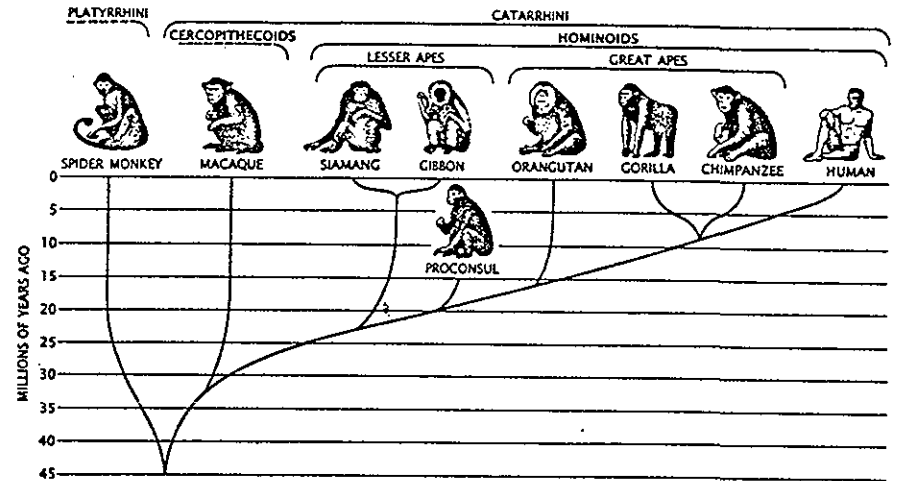 PLATYRRHINI
CATARRHINI
CERCOPITHECOIDS
HOMINOIDS
LESSER APES
GREAT APES
SPIDER MONKEY
MACAQUE
SIAMANG
GIBBON
ORANGUTAN
GORILLA
CHIMPANZEE
HUMAN
PROCONSUL
MILLIONS OF YEARS AGO
0
5
10
15
20
25
30
35
40
45